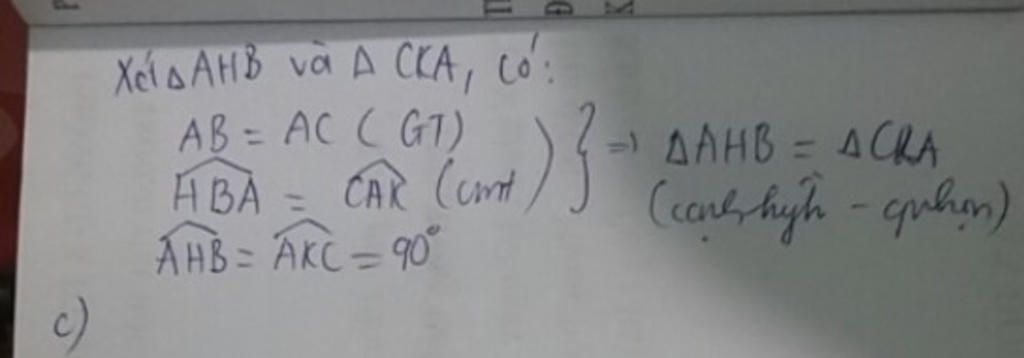 Xét Δ AHB và Δ CKA, có:
AB = AC (GT)
HBA = CAK (cmt)
AHB = AKC = 90°
} => Δ AHB = Δ CKA
(cạnh huyền - góc nhọn)
c)